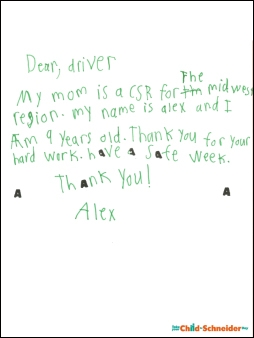 Dear, driver
My mom is a CSR for the The midwest
region. my name is alex and I
Am 9 years old. Thank you for your
hard work. have a safe week.
Thank you!
A A
Alex
Child-Schneider